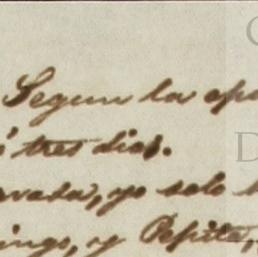 Segun la opi
ó tres dias.
vada, yo solo
ingo, y Pepita,